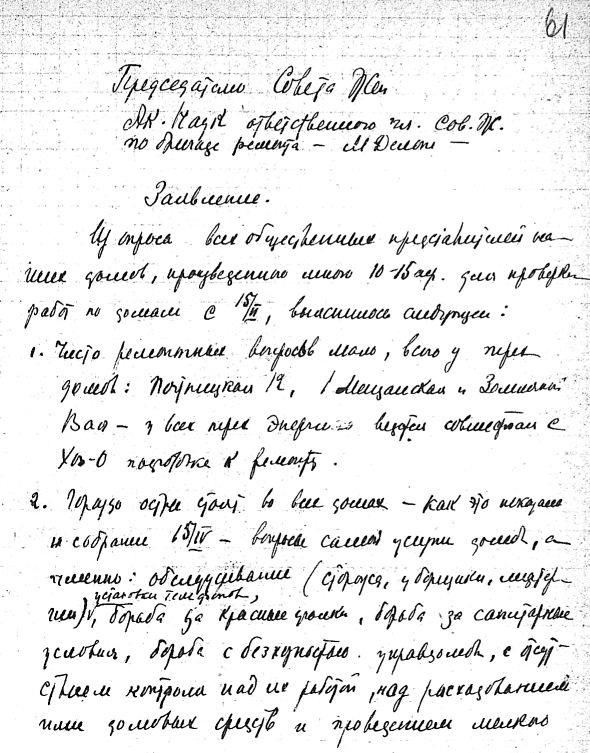 61
Председателю Совета Жен
Ак. Наук ответственного чл. Сов. Ж.
по бригаде ремонта –
Заявление.
Из опроса всех общественных представителей на-
ших домов, произведенного мною 10-15 апр. для проверки
работ по домам с 15/II, выяснилось следующее:
1. Чисто ремонтных вопросов мало, всего у трех
домов: Пятницкая 12, 1 Мещанская и Земляной
Вал – у всех трех ведется совместная с
Хоз-О подготовка к ремонту.
2. Гораздо острее стоят во всех домах – как это показало
и собрание 15/IV – вопросы самой домов, а
именно: обслуживание (сторожа, уборщики,
установки телефонов,
борьба за красные уголки, борьба за санитарные
условия, борьба с управдомов, с отсут-
ствием контроля над их работой, над расходованием
ими домовых средств и проведением мелкого